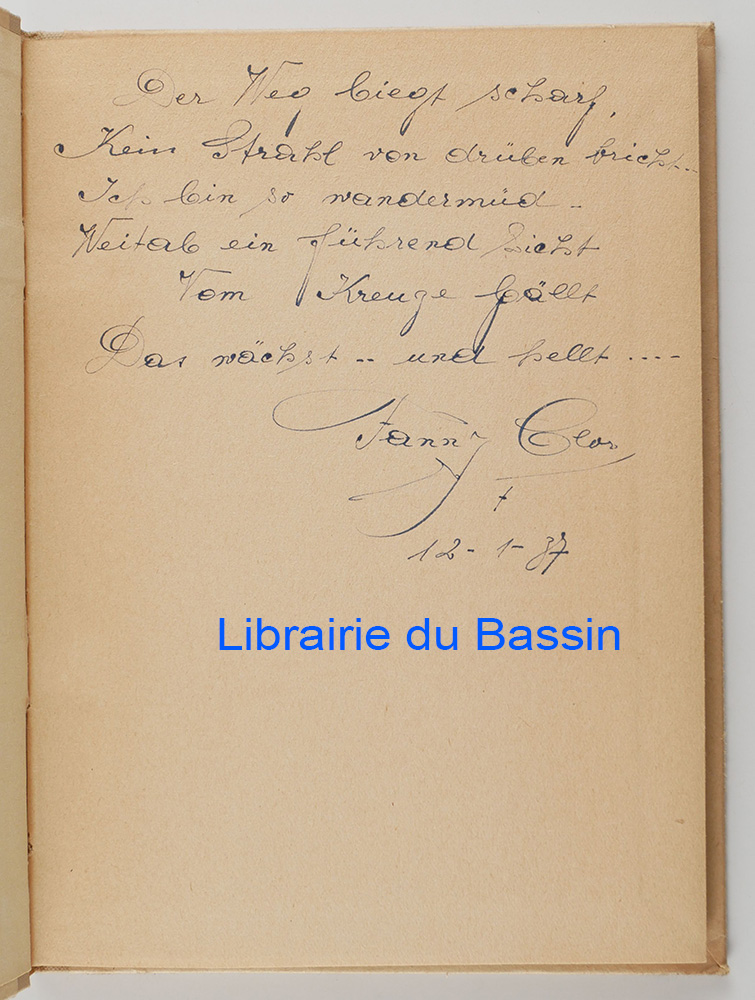 Der Weg biegt scharf,
Kein Strahl von drüben bricht..
Ich bin so wandermüd..
Weitab ein führend Licht
Vom Kreuze fällt
Das wächst .. und hellt ....
Fanny Clar
12-1-37
Librairie du Bassin